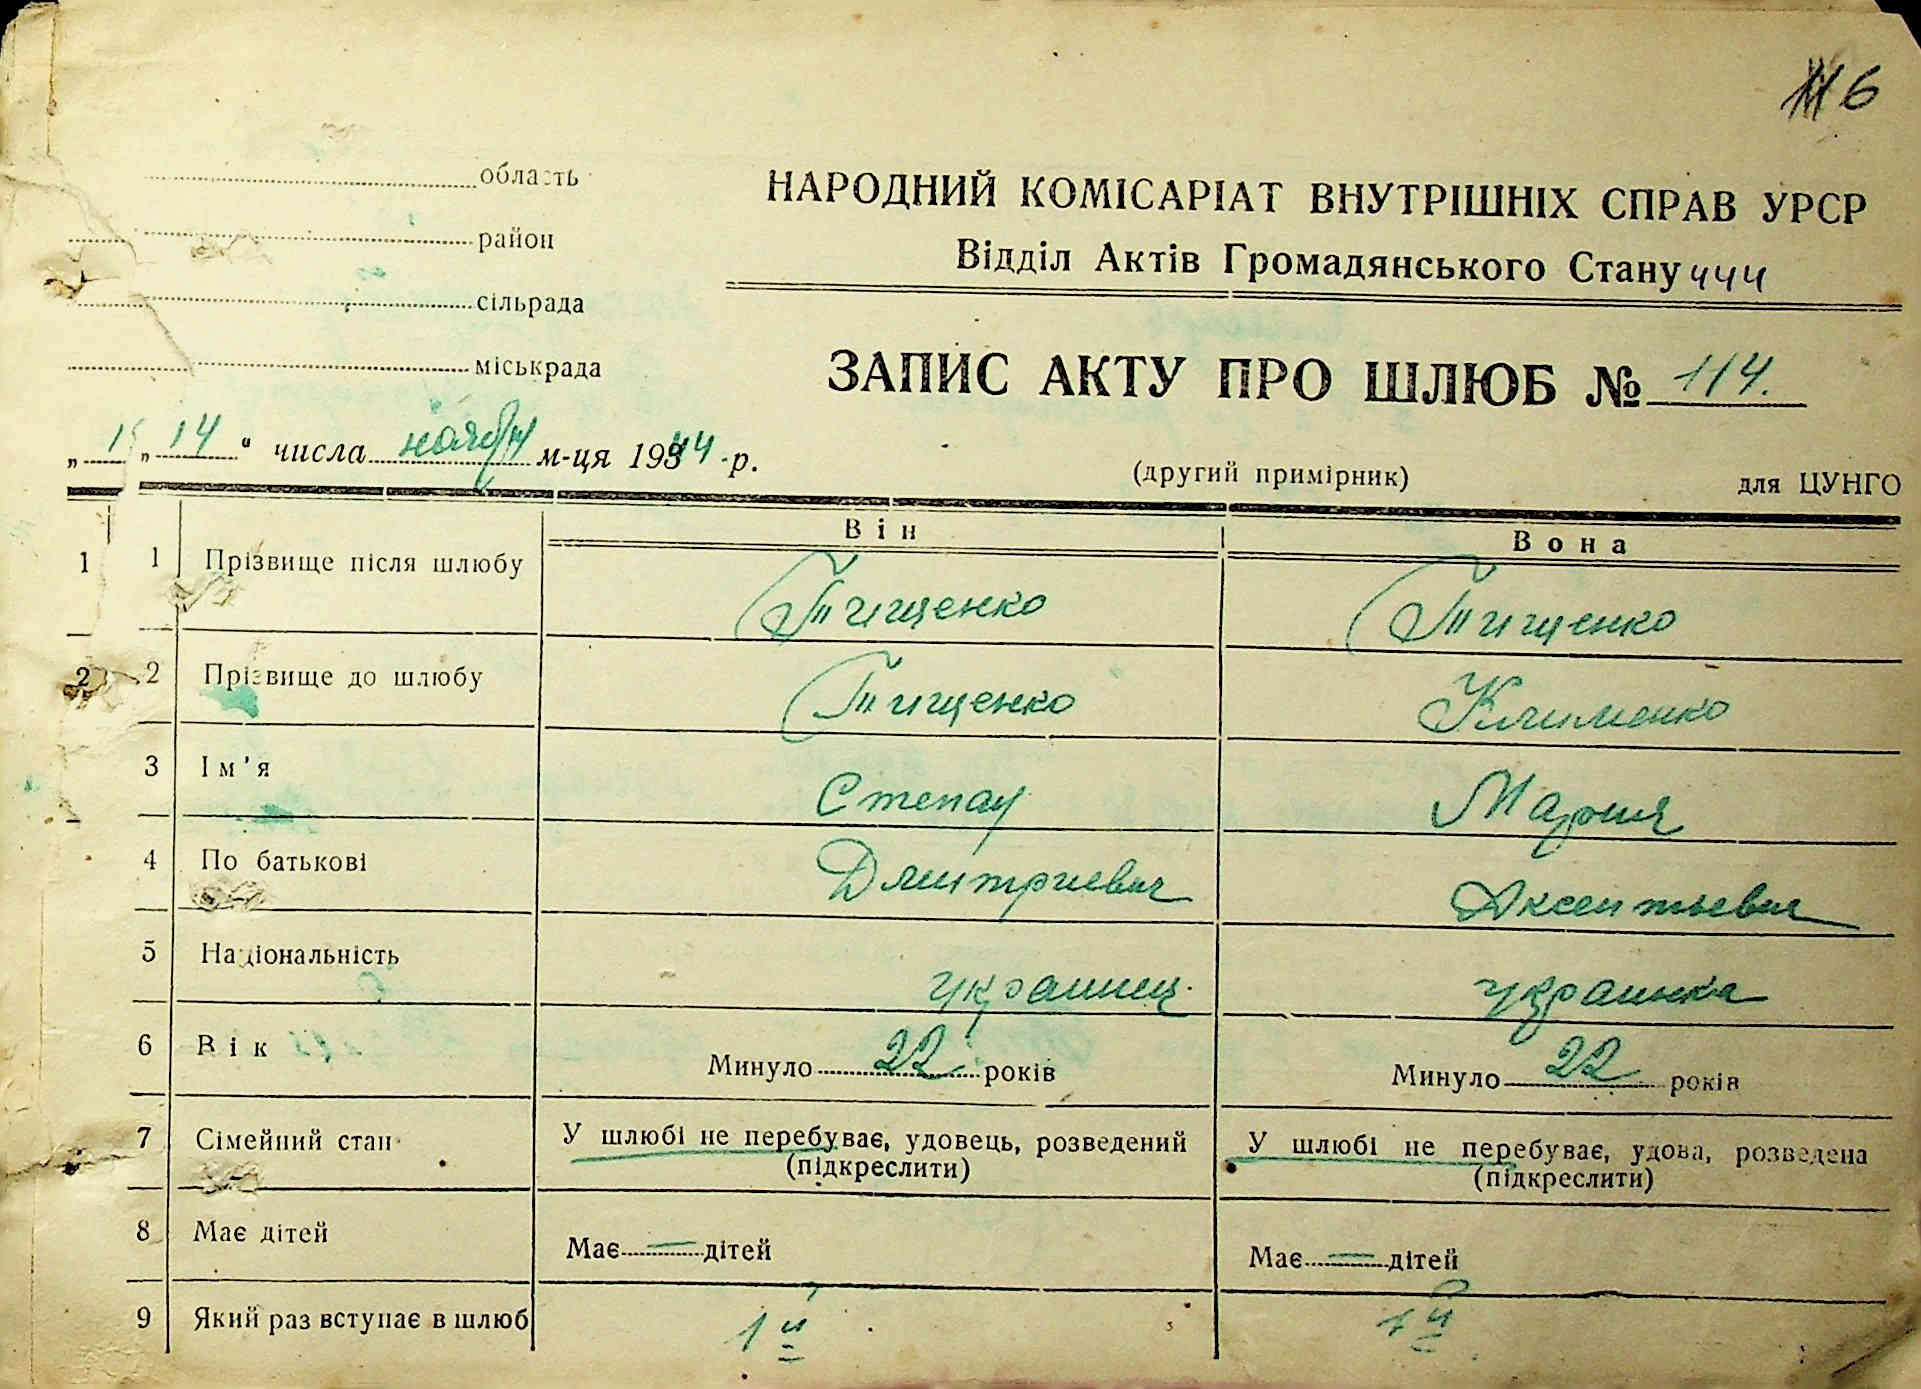 6
область
район
сільрада
міськрада
НАРОДНИЙ КОМІСАРІАТ ВНУТРІШНІХ СПРАВ УРСР
Відділ Актів Громадянського Стану
ЗАПИС АКТУ ПРО ШЛЮБ № 114.
„14" числа ноября м-ця 1944 р.
(другий примірник) для ЦУНГО
Він Вона
1 1 Прізвище після шлюбу Тищенко Тищенко
2 2 Прізвище до шлюбу Тищенко Клименко
3 Ім'я Степан Мария
4 По батькові Дмитриевич Аксентьевна
5 Національність украинец украинка
6 Вік Минуло 22 років Минуло 22 років
7 Сімейний стан У шлюбі не перебуває, удовець, розведений (підкреслити) У шлюбі не перебуває, удова, розведена (підкреслити)
8 Має дітей Має — дітей Має — дітей
9 Який раз вступає в шлюб 1й 1й